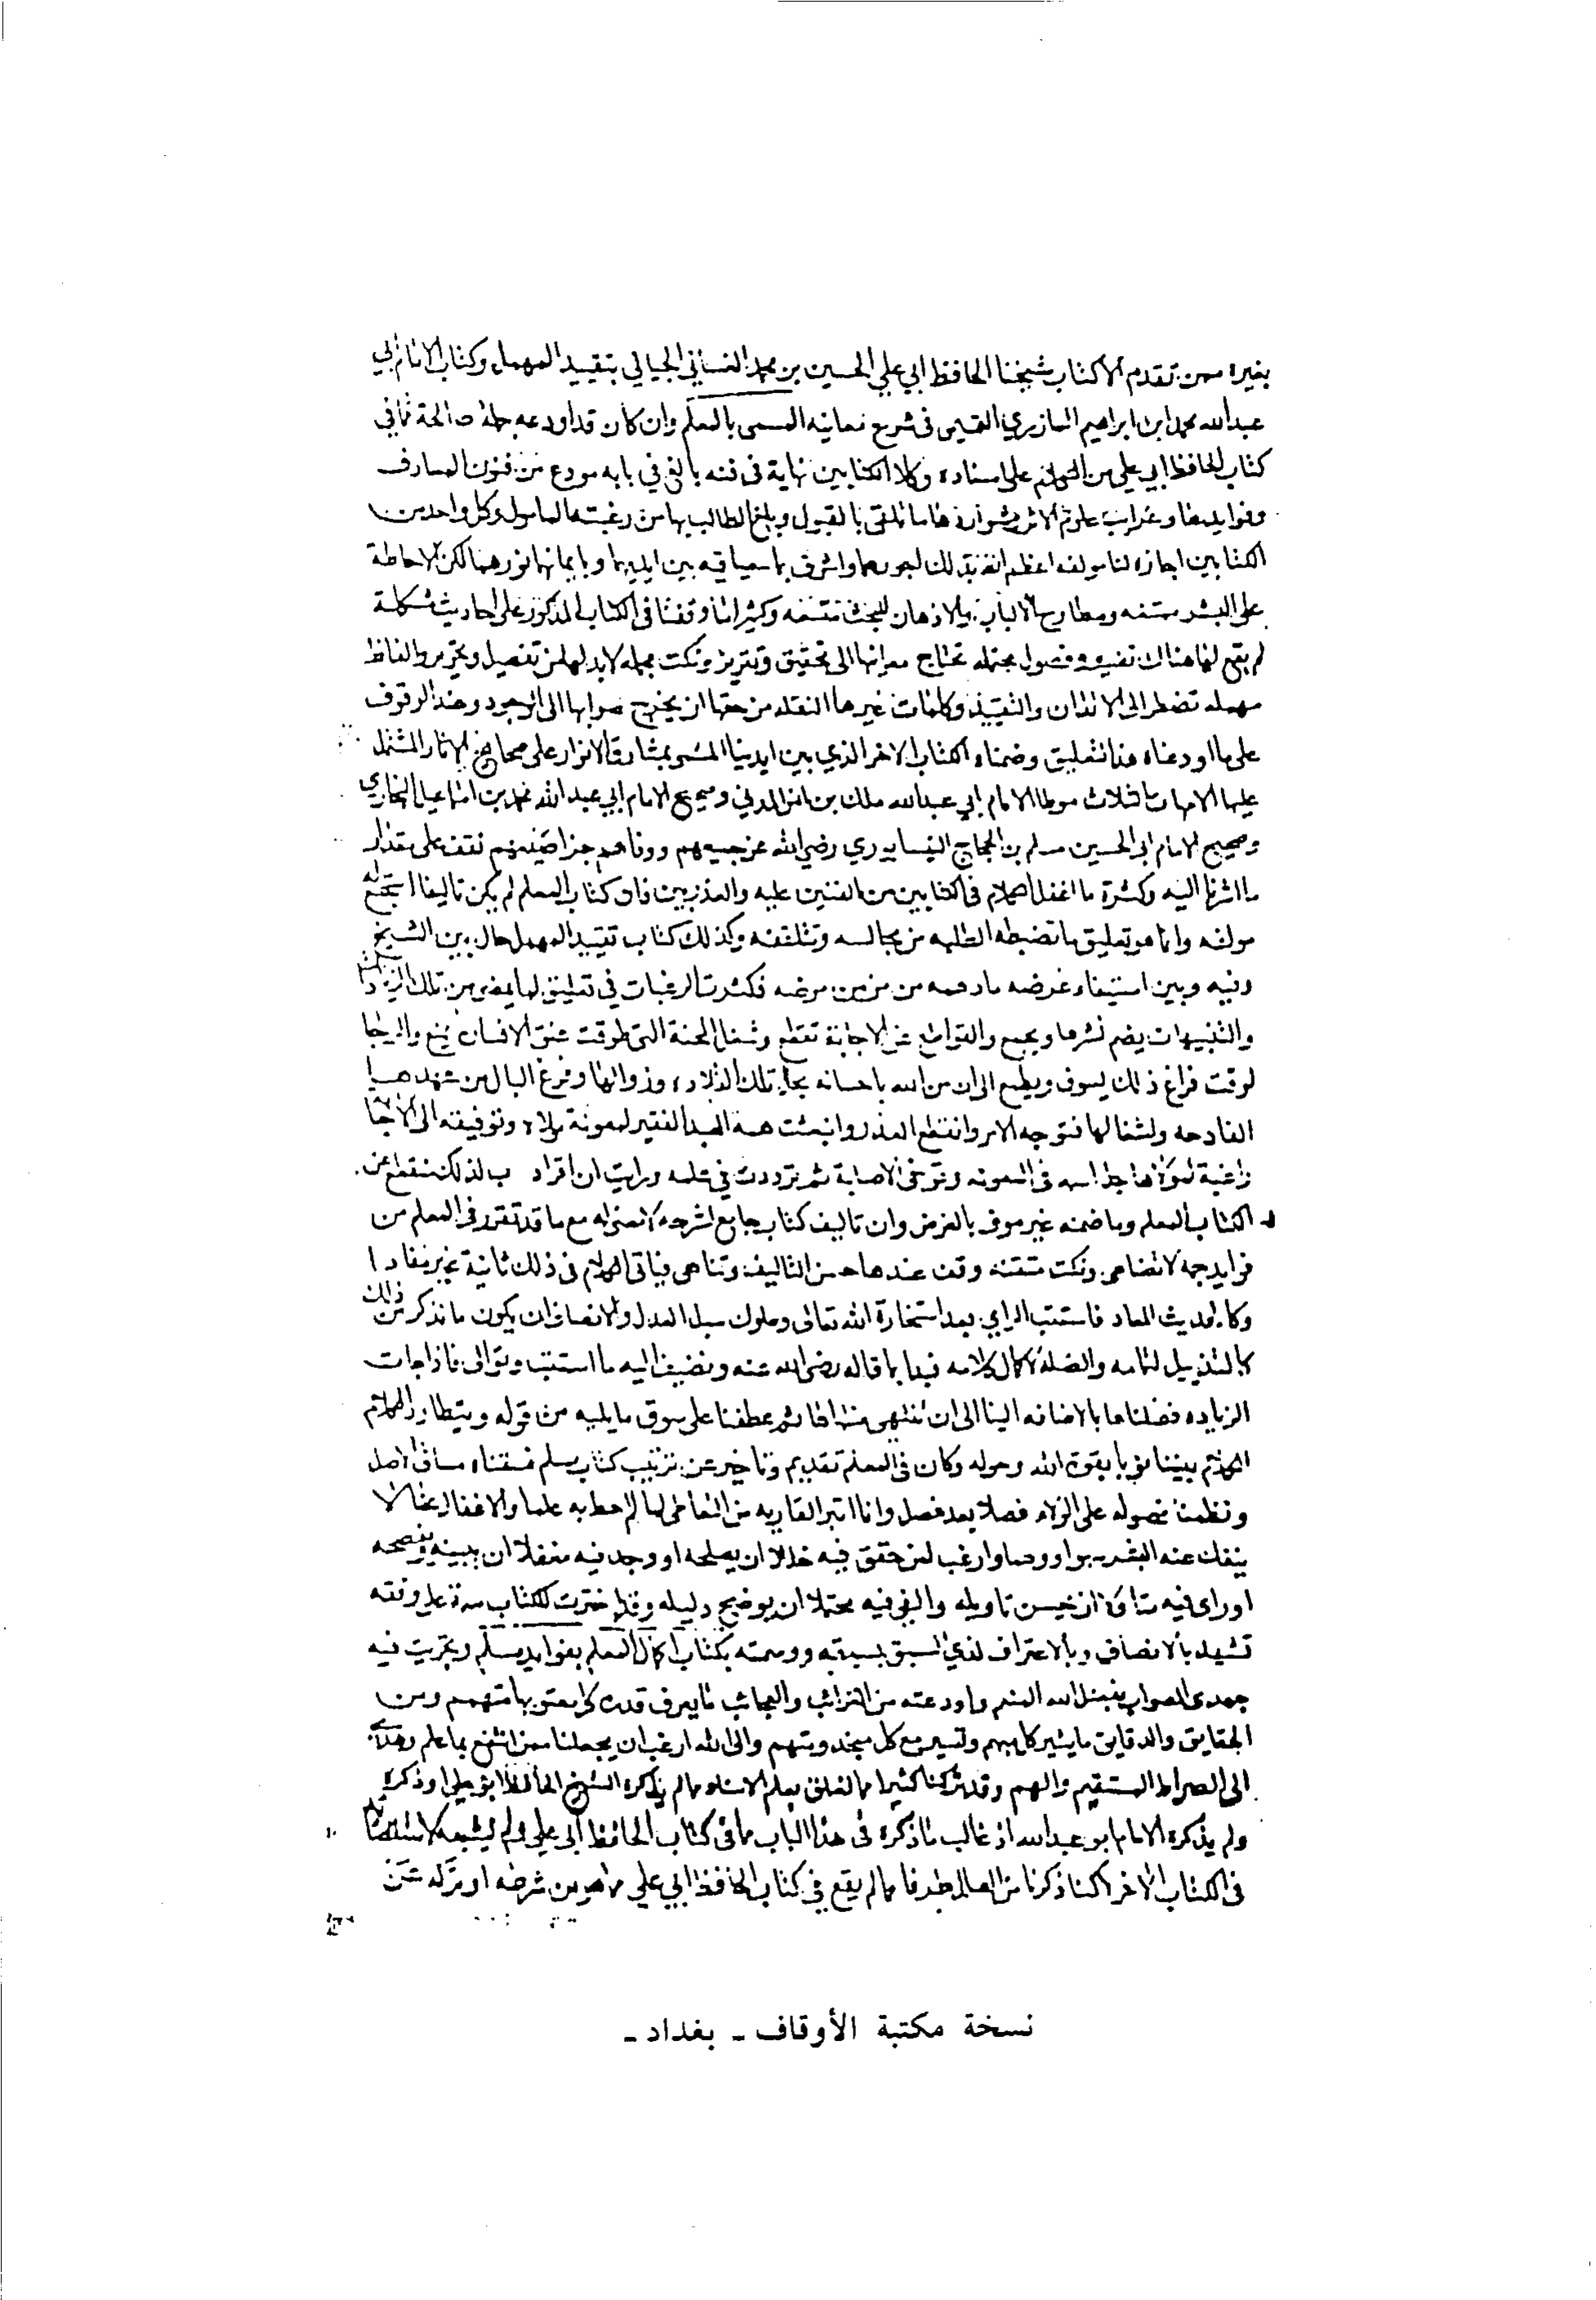 بغيره ممن تقدم الا كتاب شيخنا الحافظ ابي علي الحسين بن محمد الغساني الجياني بتقييد المهمل وكتاب الامام ابي
عبد الله محمد ابن ابراهيم المازري التميمي في شرح معانيه المسمى بالمعلم وان كان قد اودعه جملة صالحة مما في
كتاب الحافظ ابي علي من الكلام على اسناده وكلا الكتابين نهاية في فنه بالغ في بابه مودع من فنون المعارف
وفوايدها وغرايب علوم الاثر وشواردها ما تلقى بالقبول وبلغ الطالب بها من رغبته المامول وكل واحد من
الكتابين اجازه لنا مولفه اعظم الله بذلك اجورهما واشرق بما سعيا فيه بين ايديهما وبايمانهما نورهما لكن الاحاطة
على البشر ممتنعه ومطارح الالباب والاذهان للبحث متسعه وكثيرا ما وقفنا في الكتاب المذكور على احاديث مشكلة
لم يقع لها هناك تفسير وفصول محتمله تحتاج معانيها الى تحقيق وتقرير ونكت مجمله لابد لها من تفصيل وتحرير والفاظ
مهمله تضطر الى الاتقان والتقييد وكلمات غيرها النقله من حقها ان يخرج صوابها الى الوجود وعند الوقوف
على ما اودعناه هذا التعليق وضمناه الكتاب الاخر الذي بين ايدينا المسمى بمشارق الانوار على صحاح الاثار المشتمل
عليها الامهات الثلاث موطا الامام ابي عبد الله ملك بن انس المدني وصحيح الامام ابي عبد الله محمد بن اسماعيل البخاري
وصحيح الامام ابي الحسين مسلم بن الحجاج النيسابوري رضي الله عن جميعهم ووفاهم جزا صنيعهم تقف على مقدار
ما اشرنا اليه وكثرة ما اغفل الكلام في الكتابين من الفنين عليه والعذر بين فان كتاب المعلم لم يكن تاليفا استجمع له
مولفه وانما هو تعليق ما تضبطه الطلبه من مجالسه وتتلقفه وكذلك كتاب تقييد المهمل حال بين الشيخ
وفيه وبين استيفاء غرضه ما دهمه من مزمن مرضه فكثرت الرغبات في تعليق لما يمضي من تلك الزيادات
والتنبيهات يضم نشرها ويجمع والقواطع عن الاجابة تقطع وشغل المحنة التي طوقت عنق الانسان يمنع والرجا
لوقت فراغ ذلك يسوف ويطمع الى ان من الله باحسانه بحل تلك القلاده وزوالها وفرغ البال من عهدها
الفادحه واشغالها فتوجه الامر وانقطع العذر وانبعثت همة العبد الفقير لمعونة مولاه وتوفيقه الى الاجابة
في المعونه وتوخي الاصابة ثم ترددت في عمله ورايت ان افراد بذلك منقطع عن
الكتاب المعلم وما ضمنه غير موف بالغرض وان تاليف كتاب جامع لشرحه مع ما قد تقرر في المعلم من
فوايد جمة لا تضاهى ونكت متقنه وقف عندها حسن التاليف وتناهى فياتي الكلام في ذلك ثانية غير مفادا
وكالحديث المعاد فاستتب الراي بعد استخارة الله تعالى وسلوك سبيل العدل والانصاف ان يكون ما نذكر من ذلك
كالتذييل لتمامه والصلة لاكمال كلامه فنبدا بما قاله رضي الله عنه ونضيف اليه ما استتب وتوالى فاذا جات
الزياده فصلناها بالاضافه الينا الى ان تنتهي منتهاها ثم عطفنا على سوق ما يليه من قوله ويتطارد الكلام
بيننا نوبا بقوة الله وحوله وكان في المعلم تقديم وتاخير عن ترتيب كتاب مسلم فسقناه مساق الاصل
ونظمنا فصوله على الولاء فصلا بعد فصل وانا ابرا لقاريه من التعاطي لما لم احط به علما والاغفال عما لا
ينفك عنه البشر سهوا ووهما وارغب لمن حقق فيه خللا ان يصلحه او وجد فيه مغفلا ان يبينه ويفصحه
او راى فيه متاولا ان يحسن تاويله والفى فيه محتملا ان يوضح دليله وقد اخترت للكتاب سمة على وفقه
تشهد بالانصاف وبالاعتراف لذي السبق بسبقه ووسمته بكتاب اكمال المعلم بفوايد مسلم وتحريت فيه
جهدي الصواب بفضل الله المنعم واودعته من الغرائب والعجائب ما يعرف قدره كل معتن بها متهمم ومن
الحقايق والدقايق ما يشير كل مبهم وتسير مع كل منجد ومتهم والى الله ارغب ان يجعلنا ممن انتفع بما علم وهداه
الى الصراط المستقيم والهم وقد تركنا كثيرا مما تعلق بعلم الاسناد مما لم يذكره الشيخ الحافظ ابو علي او ذكره
ولم يذكره الامام ابو عبد الله اذ غالب ما ذكره في هذا الباب مما في كتاب الحافظ ابي علي ولم يشبعه
في الكتاب الاخر لكنا ذكرنا من العلل طرفا مما لم يقع في كتاب الحافظ ابي علي مما هو من شرطه او تركه عن
نسخة مكتبة الأوقاف - بغداد -